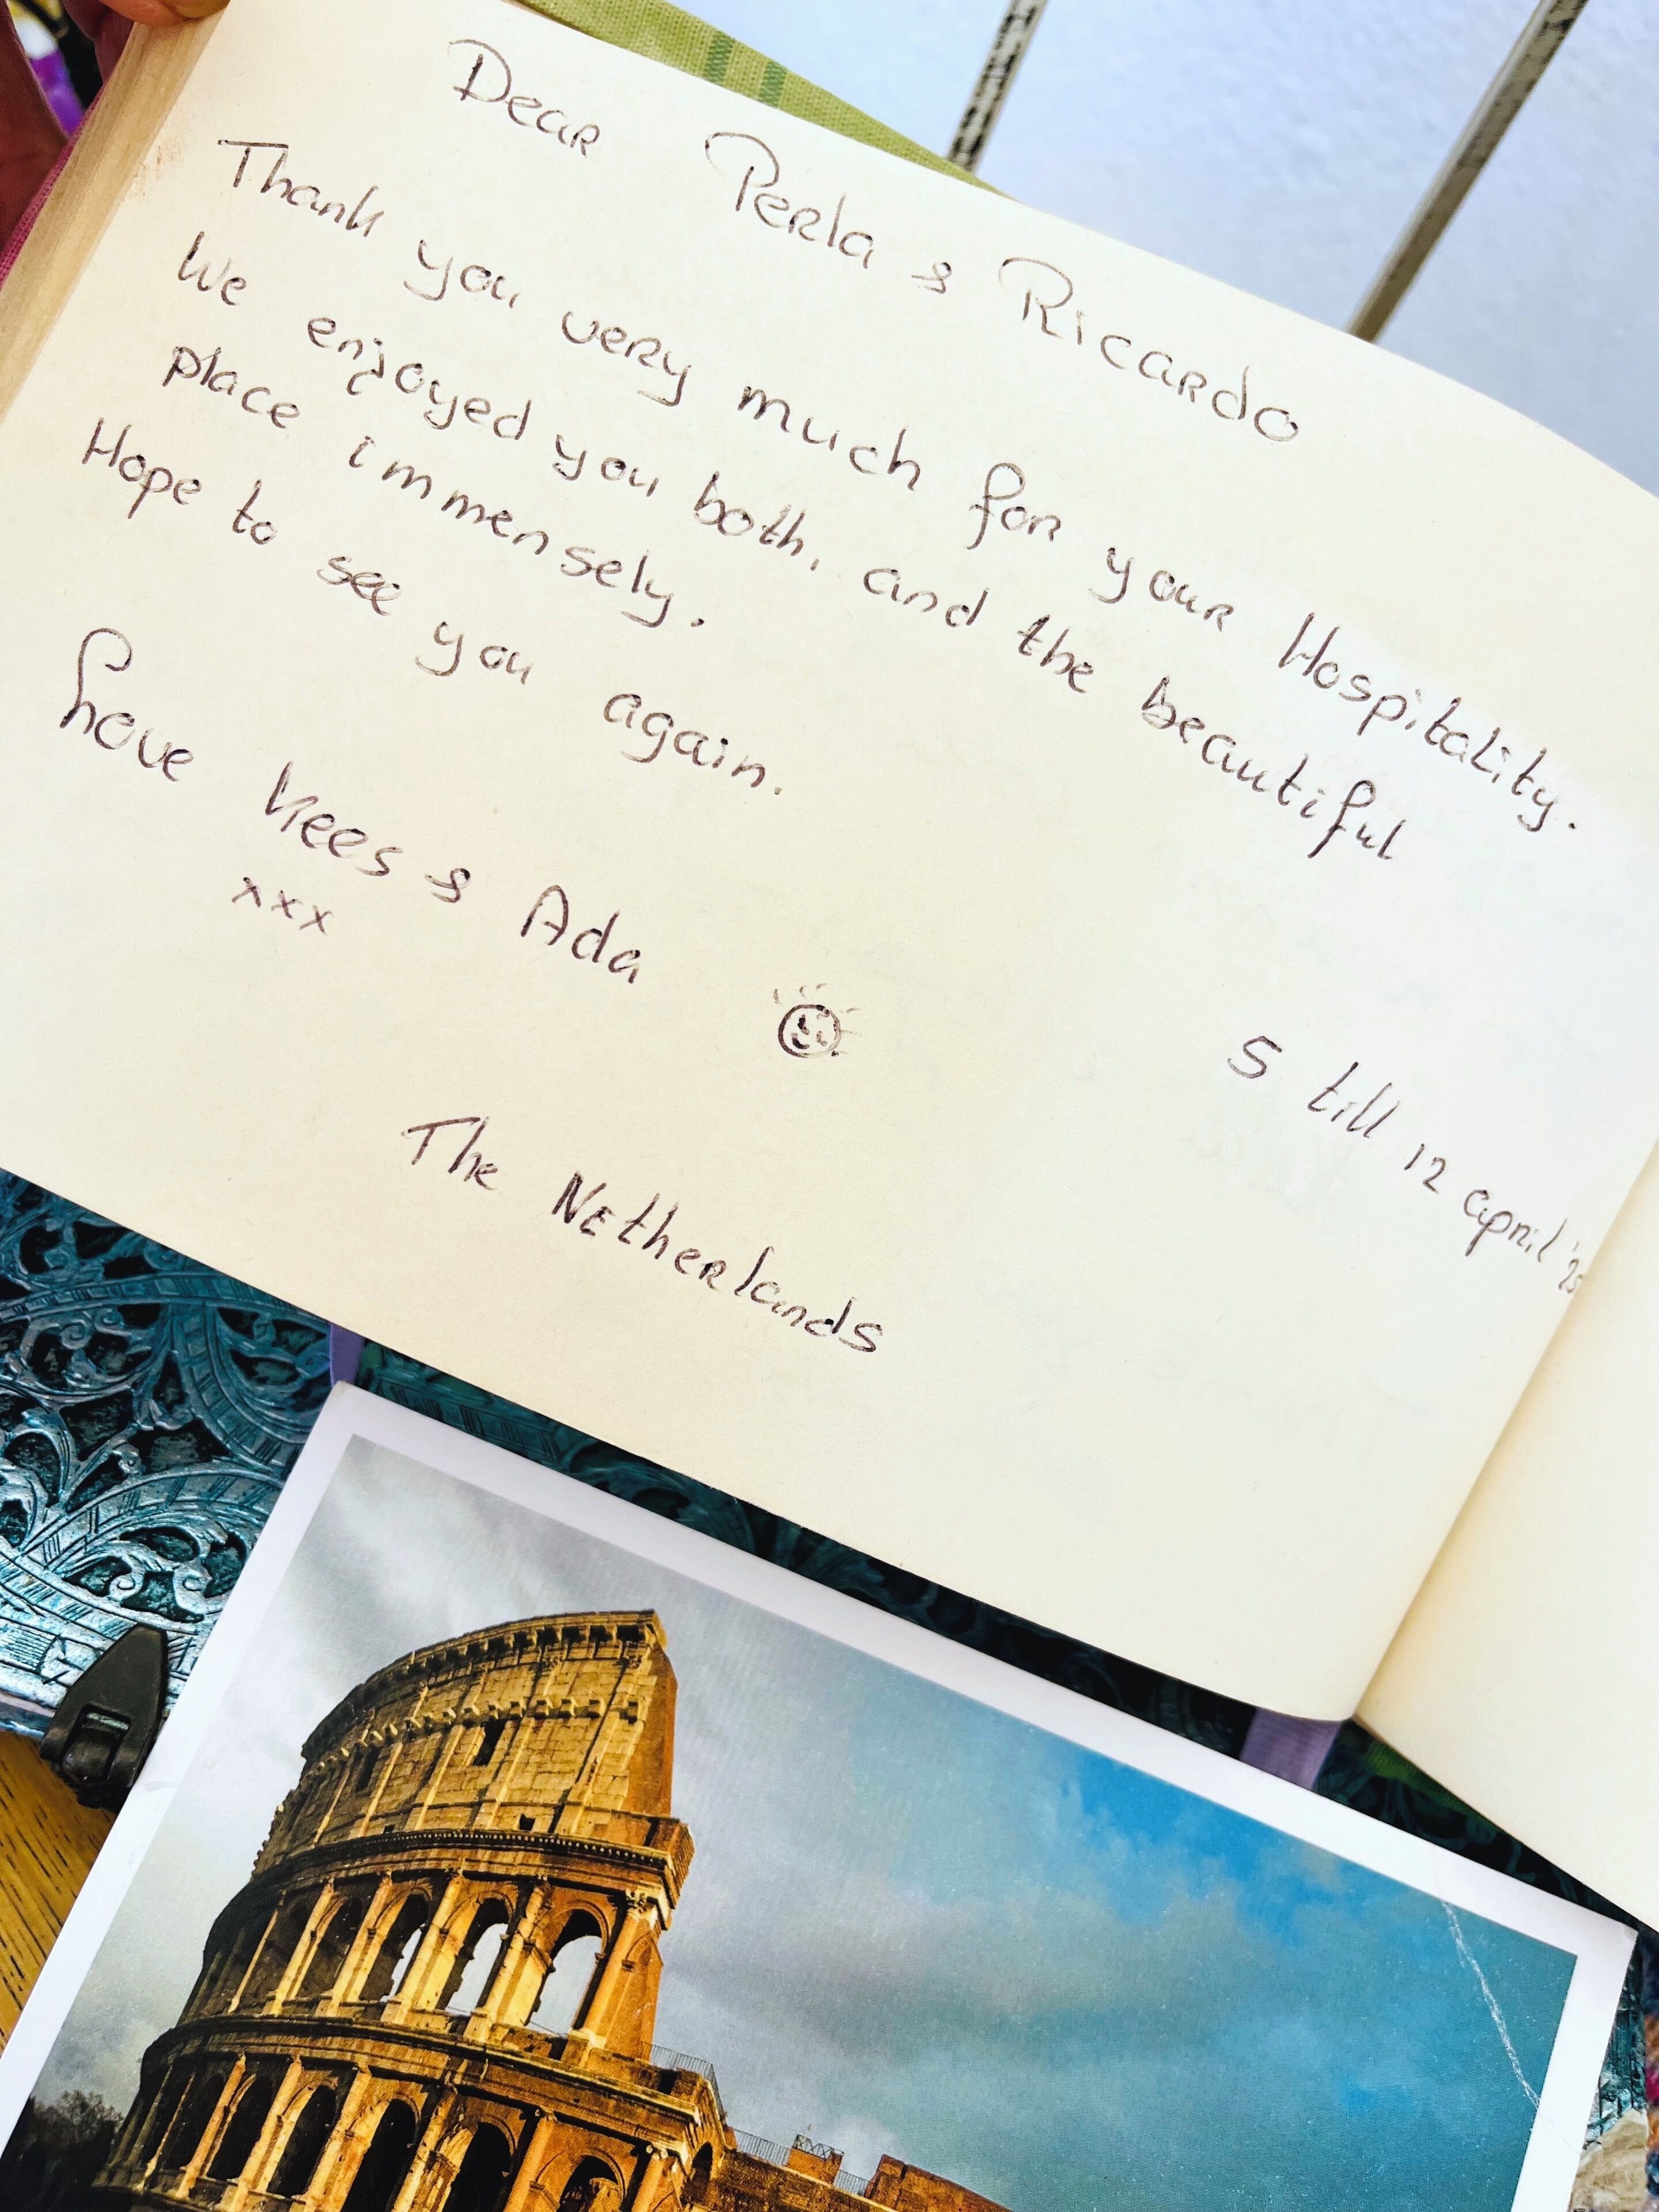 Dear Perla & Ricardo
Thank you very much for your Hospitality.
We enjoyed you both, and the beautiful
place immensely.
Hope to see you again.
Love Kees & Ada
xxx
5 till 12 april '25
The Netherlands